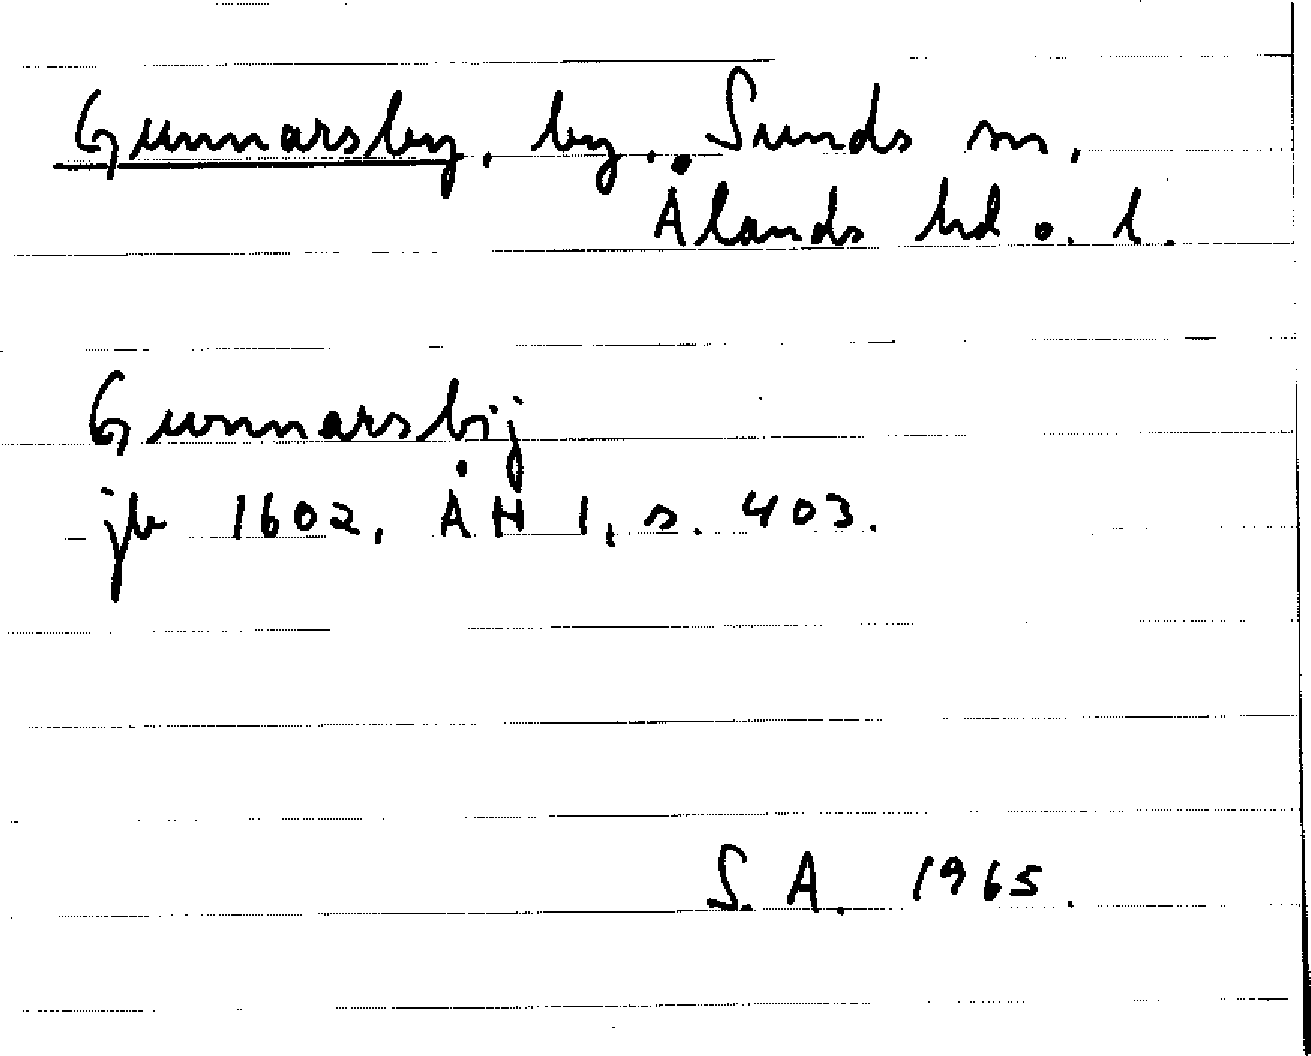 Gunnarsby, by, Sunds sn,
Ålands hd o. l.
Gunnarsbij
jb 1602, ÅH 1, s. 403.
S. A. 1965.